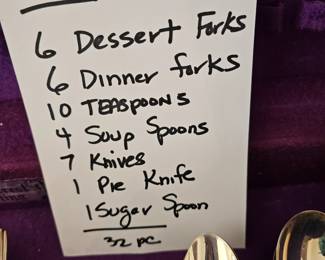 6 Dessert Forks
6 Dinner forks
10 TEASPOONS
4 Soup Spoons
7 Knives
1 Pie Knife
1 Suger Spoon
32 pc